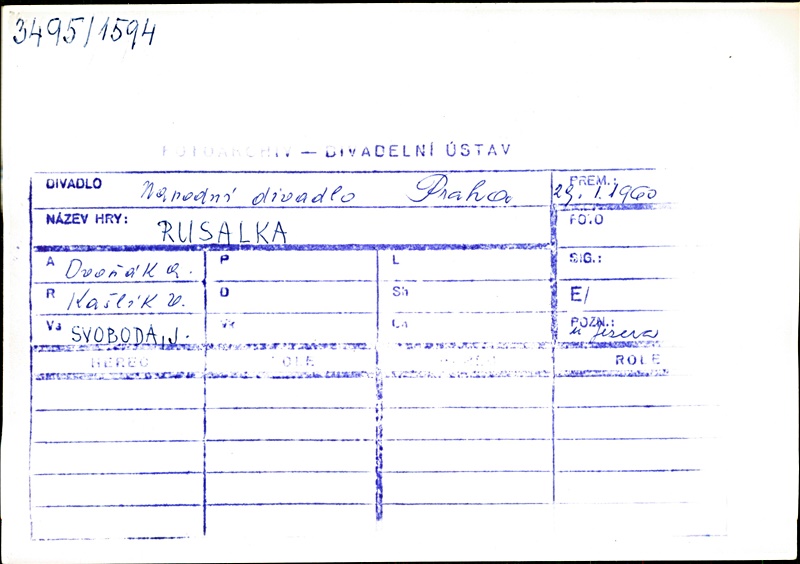 3495/1594
FOTOARCHIV — DIVADELNÍ ÚSTAV
DIVADLO Národní divadlo Praha PREM.: 29. 1. 1960
NÁZEV HRY: RUSALKA FOTO
A Dvořák A. P L SIG.:
R Kašlík V. O Sh E/
Vs SVOBODA, J. POZN.:
HEREC ROLE HEREC ROLE